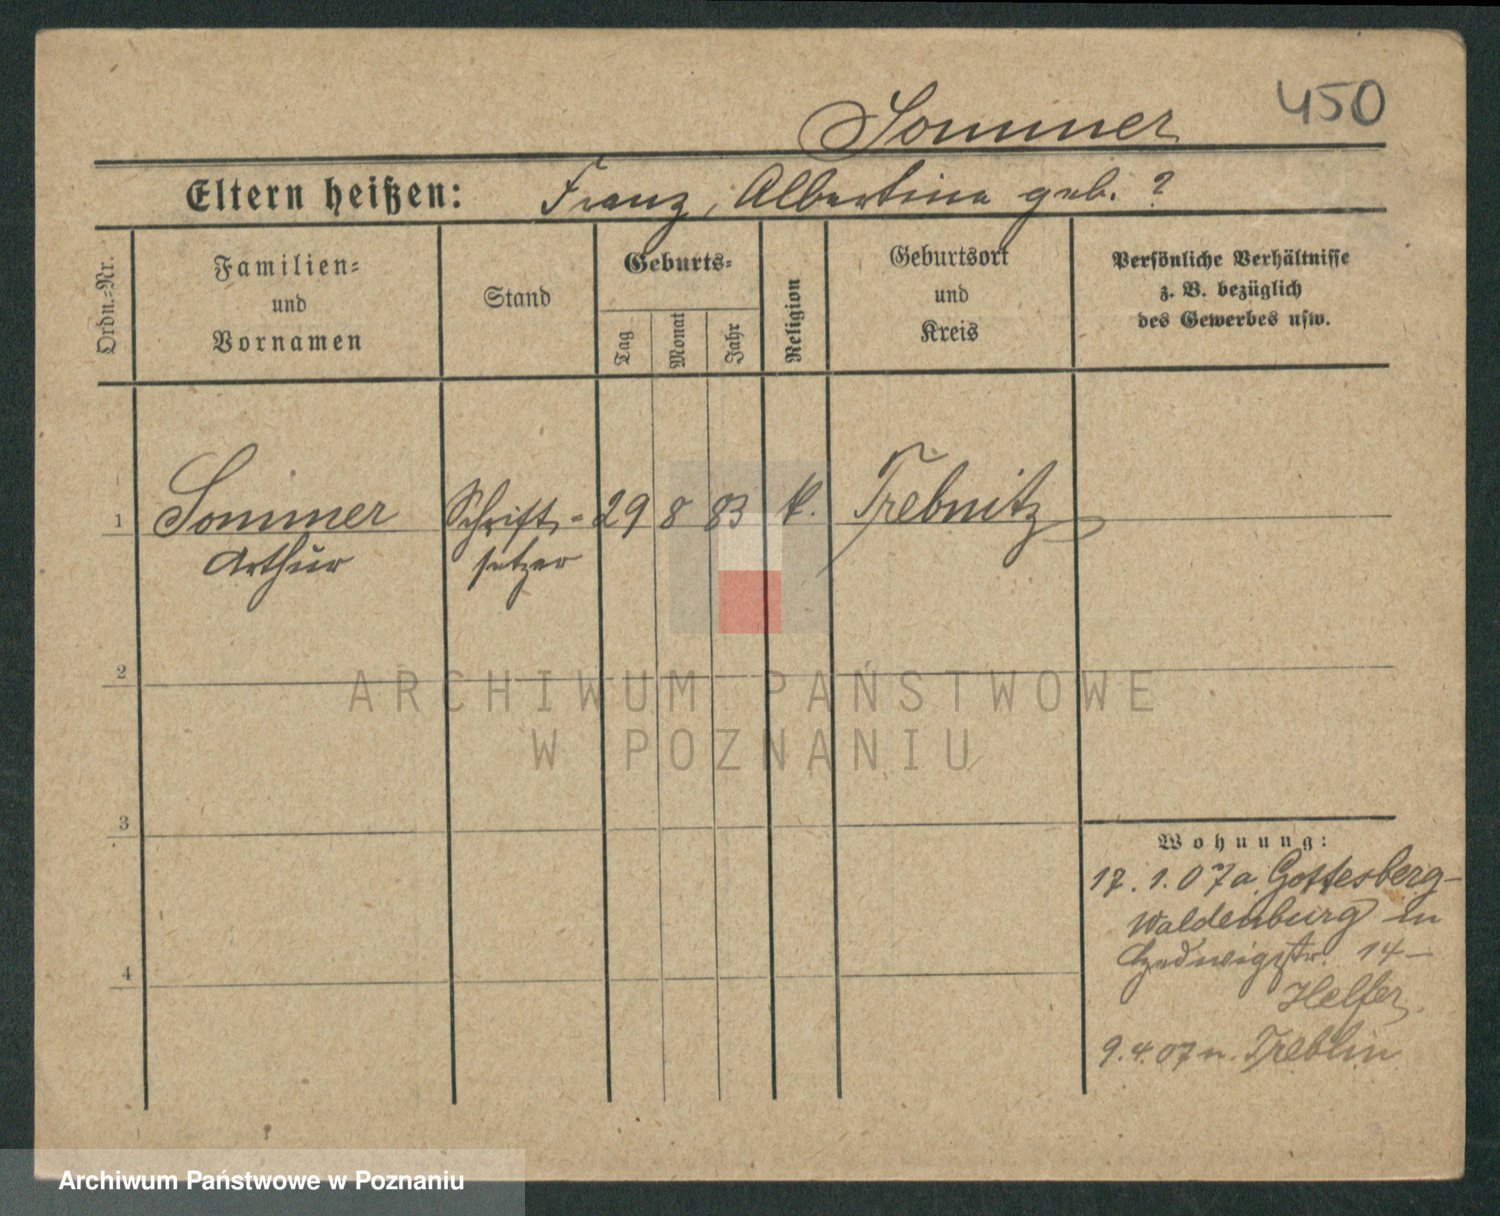 450
Sommer
Eltern heißen: Franz, Albertina geb. ?
Ordn.=Nr.
Familien=
und
Vornamen
Stand
Geburts=
Tag
Monat
Jahr
Religion
Geburtsort
und
Kreis
Persönliche Verhältnisse
z. B. bezüglich
des Gewerbes usw.
1 Sommer Schrift- 29 8 83 k. Trebnitz
Arthur setzer
2
3
4
Wohnung:
17. 1. 07 a Gottesberg-
Waldenburg in
Hedwigstr. 14-
Helfer
9. 4. 07 n. Treblin
ARCHIWUM PAŃSTWOWE
W POZNANIU
Archiwum Państwowe w Poznaniu